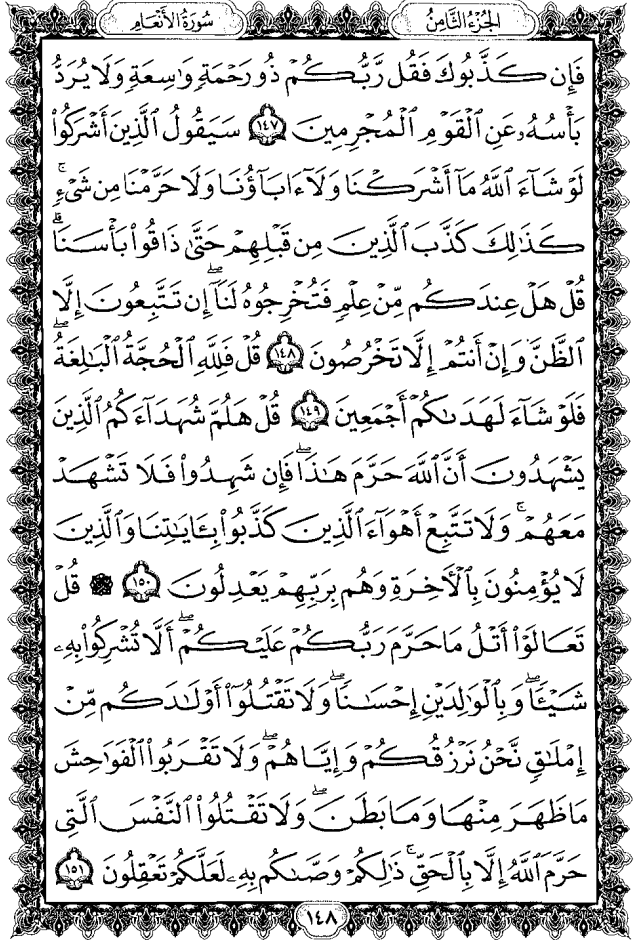 الجُزْءُ الثَّامِنُ
سُورَةُ الأَنْعَامِ
فَإِن كَذَّبُوكَ فَقُل رَّبُّكُمۡ ذُو رَحۡمَةٖ وَٰسِعَةٖ وَلَا يُرَدُّ
بَأۡسُهُۥ عَنِ ٱلۡقَوۡمِ ٱلۡمُجۡرِمِينَ ١٤٧ سَيَقُولُ ٱلَّذِينَ أَشۡرَكُواْ
لَوۡ شَآءَ ٱللَّهُ مَآ أَشۡرَكۡنَا وَلَآ ءَابَآؤُنَا وَلَا حَرَّمۡنَا مِن شَيۡءٖۚ
كَذَٰلِكَ كَذَّبَ ٱلَّذِينَ مِن قَبۡلِهِمۡ حَتَّىٰ ذَاقُواْ بَأۡسَنَاۗ
قُلۡ هَلۡ عِندَكُم مِّنۡ عِلۡمٖ فَتُخۡرِجُوهُ لَنَآۖ إِن تَتَّبِعُونَ إِلَّا
ٱلظَّنَّ وَإِنۡ أَنتُمۡ إِلَّا تَخۡرُصُونَ ١٤٨ قُلۡ فَلِلَّهِ ٱلۡحُجَّةُ ٱلۡبَٰلِغَةُۖ
فَلَوۡ شَآءَ لَهَدَىٰكُمۡ أَجۡمَعِينَ ١٤٩ قُلۡ هَلُمَّ شُهَدَآءَكُمُ ٱلَّذِينَ
يَشۡهَدُونَ أَنَّ ٱللَّهَ حَرَّمَ هَٰذَاۖ فَإِن شَهِدُواْ فَلَا تَشۡهَدۡ
مَعَهُمۡۚ وَلَا تَتَّبِعۡ أَهۡوَآءَ ٱلَّذِينَ كَذَّبُواْ بِـَٔايَٰتِنَا وَٱلَّذِينَ
لَا يُؤۡمِنُونَ بِٱلۡأٓخِرَةِ وَهُم بِرَبِّهِمۡ يَعۡدِلُونَ ١٥٠ ۞ قُلۡ
تَعَالَوۡاْ أَتۡلُ مَا حَرَّمَ رَبُّكُمۡ عَلَيۡكُمۡۖ أَلَّا تُشۡرِكُواْ بِهِۦ
شَيۡـٔٗاۖ وَبِٱلۡوَٰلِدَيۡنِ إِحۡسَٰنٗاۖ وَلَا تَقۡتُلُوٓاْ أَوۡلَٰدَكُم مِّنۡ
إِمۡلَٰقٖ نَّحۡنُ نَرۡزُقُكُمۡ وَإِيَّاهُمۡۖ وَلَا تَقۡرَبُواْ ٱلۡفَوَٰحِشَ
مَا ظَهَرَ مِنۡهَا وَمَا بَطَنَۖ وَلَا تَقۡتُلُواْ ٱلنَّفۡسَ ٱلَّتِي
حَرَّمَ ٱللَّهُ إِلَّا بِٱلۡحَقِّۚ ذَٰلِكُمۡ وَصَّىٰكُم بِهِۦ لَعَلَّكُمۡ تَعۡقِلُونَ ١٥١
١٤٨